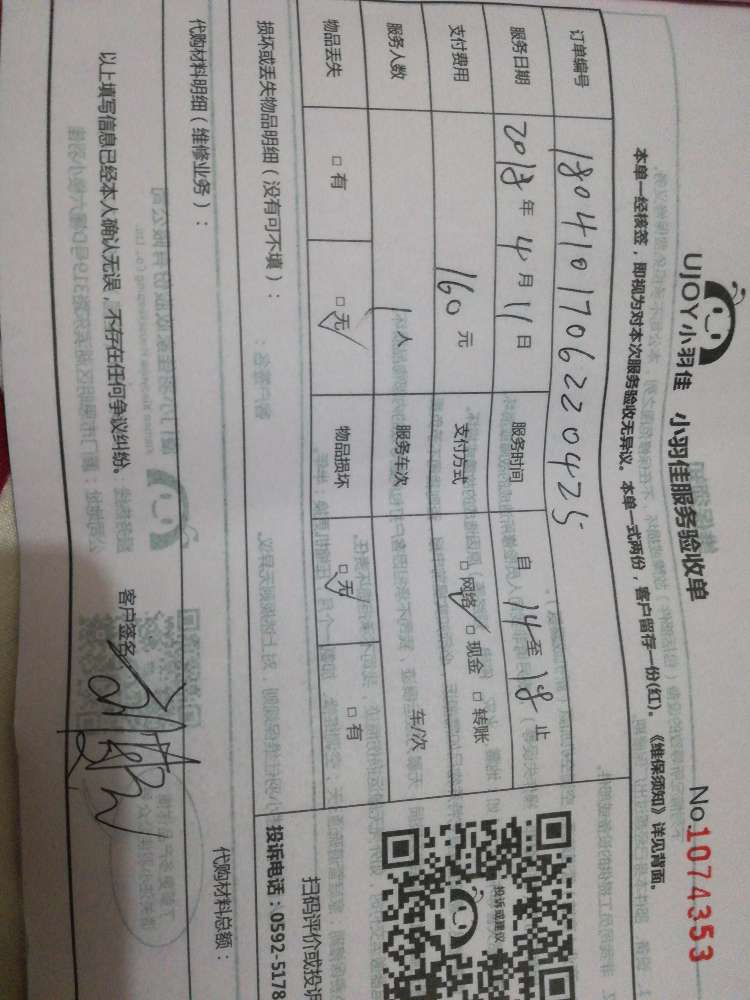 UJOY小羽佳 小羽佳服务验收单
No.1074353
本单一经核签，即视为对本次服务验收无异议。本单一式两份，客户留存一份(红)。《维保须知》详见背面。
订单编号 1804101706220425
服务日期 2018年4月11日 服务时间 自14至18止
支付费用 160元 支付方式 □网络 □现金 □转账
服务人数 1人 服务车次 车/次
物品丢失 □有 □无 物品损坏 □无 □有
损坏或丢失物品明细（没有可不填）：
投诉或建议
扫码评价或投诉
投诉电话：0592-5178
代购材料明细（维修业务）：
代购材料总额：
以上填写信息已经本人确认无误，不存在任何争议纠纷。
客户签名